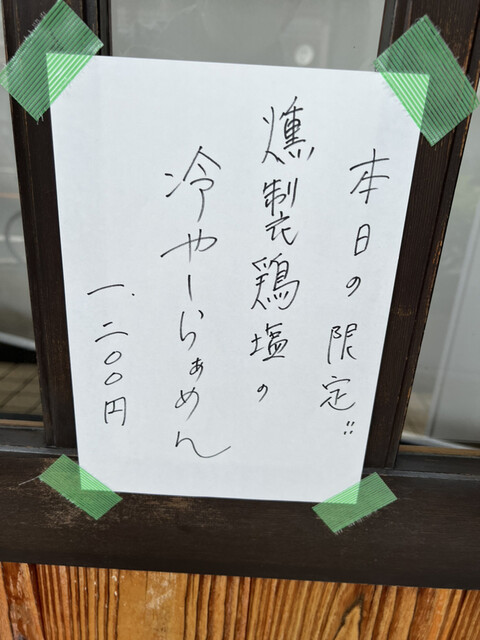 本日の限定!!
燻製鶏塩の
冷やーらぁめん
一.二〇〇円